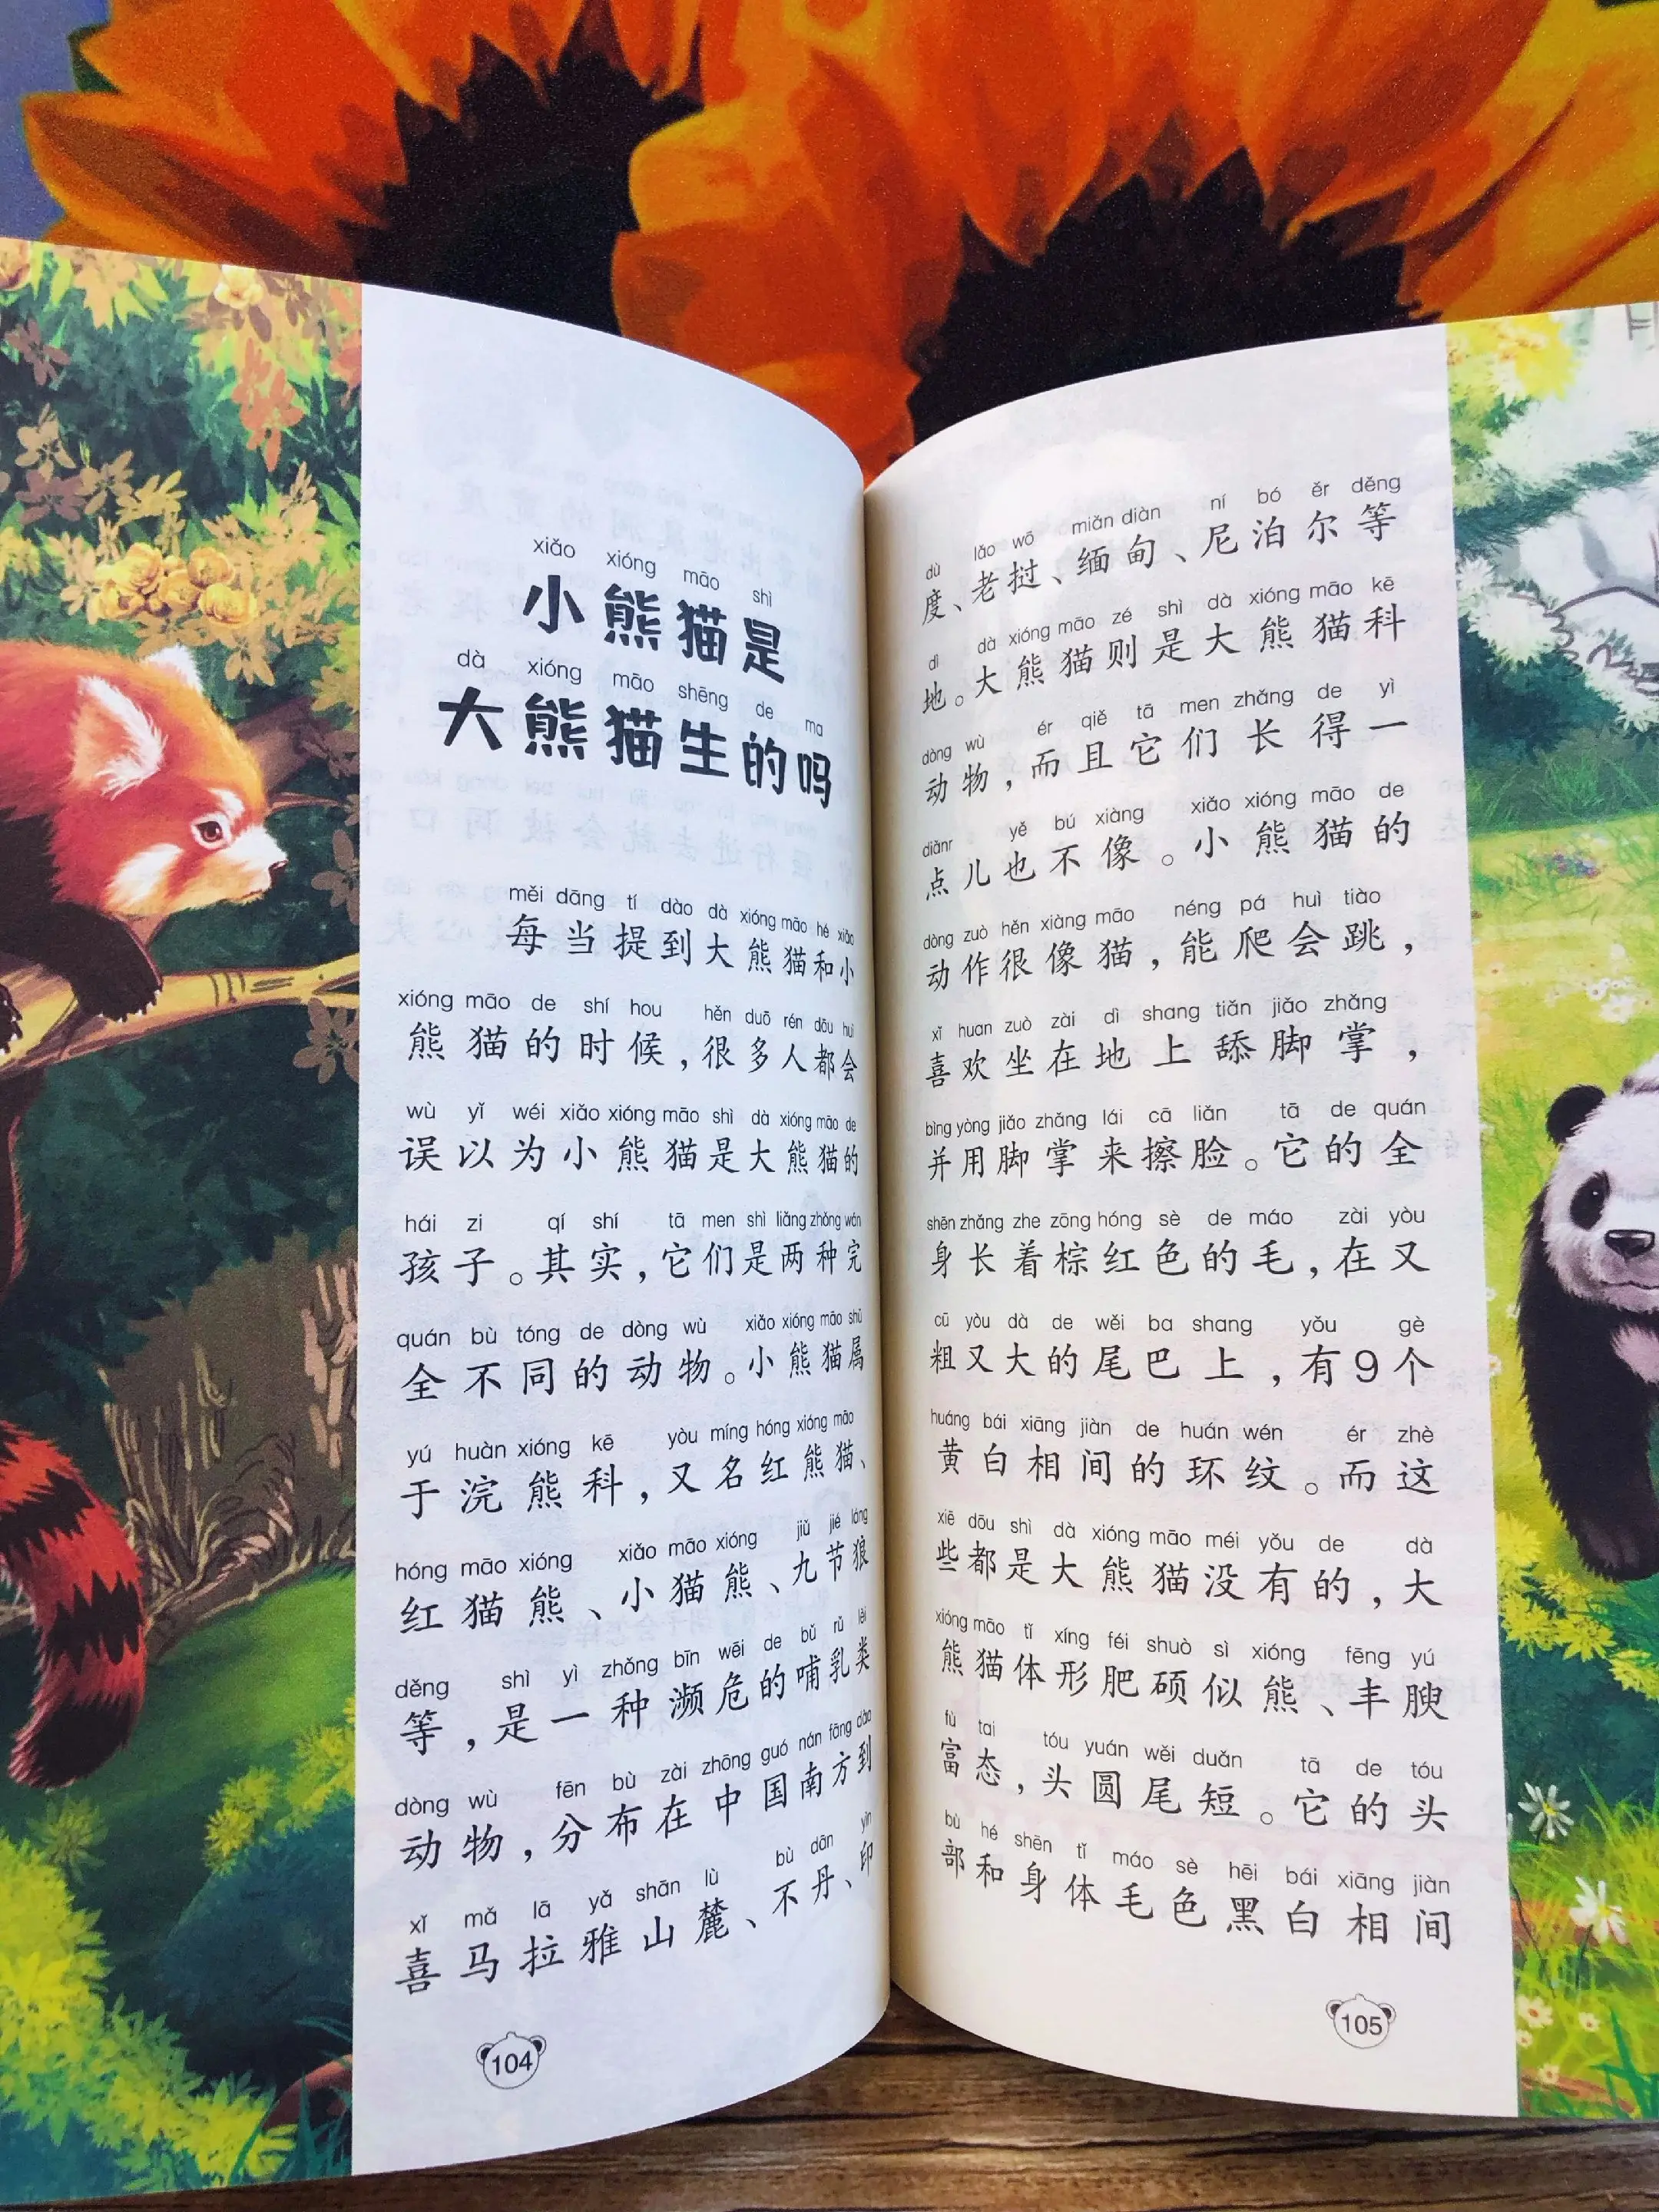 xiǎo xióng māo shì
小熊猫是
dà xióng māo shēng de ma
大熊猫生的吗
měi dāng tí dào dà xióng māo hé xiǎo
每当提到大熊猫和小
xióng māo de shí hou hěn duō rén dōu huì
熊猫的时候，很多人都会
wù yǐ wéi xiǎo xióng māo shì dà xióng māo de
误以为小熊猫是大熊猫的
hái zi qí shí tā men shì liǎng zhǒng wán
孩子。其实，它们是两种完
quán bù tóng de dòng wù xiǎo xióng māo shǔ
全不同的动物。小熊猫属
yú huàn xióng kē yòu míng hóng xióng māo
于浣熊科，又名红熊猫、
hóng māo xióng xiǎo māo xióng jiǔ jié láng
红猫熊、小猫熊、九节狼
děng shì yì zhǒng bīn wēi de bǔ rǔ lèi
等，是一种濒危的哺乳类
dòng wù fēn bù zài zhōng guó nán fāng dào
动物，分布在中国南方到
xǐ mǎ lā yǎ shān lù bù dān yìn
喜马拉雅山麓、不丹、印
104
dù lǎo wō miǎn diàn ní bó ěr děng
度、老挝、缅甸、尼泊尔等
dì dà xióng māo zé shì dà xióng māo kē
地。大熊猫则是大熊猫科
dòng wù ér qiě tā men zhǎng de yì
动物，而且它们长得一
diǎnr yě bú xiàng xiǎo xióng māo de
点儿也不像。小熊猫的
dòng zuò hěn xiàng māo néng pá huì tiào
动作很像猫，能爬会跳，
xǐ huan zuò zài dì shang tiǎn jiǎo zhǎng
喜欢坐在地上舔脚掌，
bìng yòng jiǎo zhǎng lái cā liǎn tā de quán
并用脚掌来擦脸。它的全
shēn zhǎng zhe zōng hóng sè de máo zài yòu
身长着棕红色的毛，在又
cū yòu dà de wěi ba shang yǒu gè
粗又大的尾巴上，有9个
huáng bái xiāng jiàn de huán wén ér zhè
黄白相间的环纹。而这
xiē dōu shì dà xióng māo méi yǒu de dà
些都是大熊猫没有的，大
xióng māo tǐ xíng féi shuò sì xióng fēng yú
熊猫体形肥硕似熊、丰腴
fù tai tóu yuán wěi duǎn tā de tóu
富态，头圆尾短。它的头
bù hé shēn tǐ máo sè hēi bái xiāng jiàn
部和身体毛色黑白相间
105